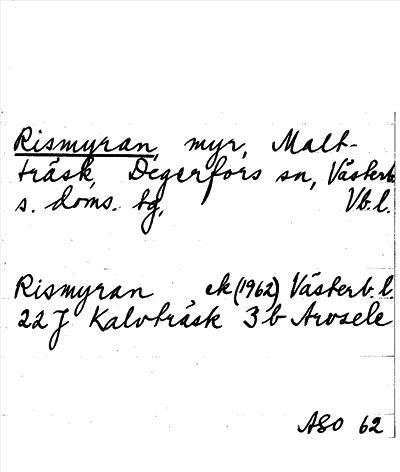 Rismyran, myr, Malt-
träsk, Degerfors sn, Västerb.
s. doms. tg, Vb. l.
Rismyran ek (1962) Västerb. l.
22 J Kalvträsk 3 b Arvsele
ASO 62